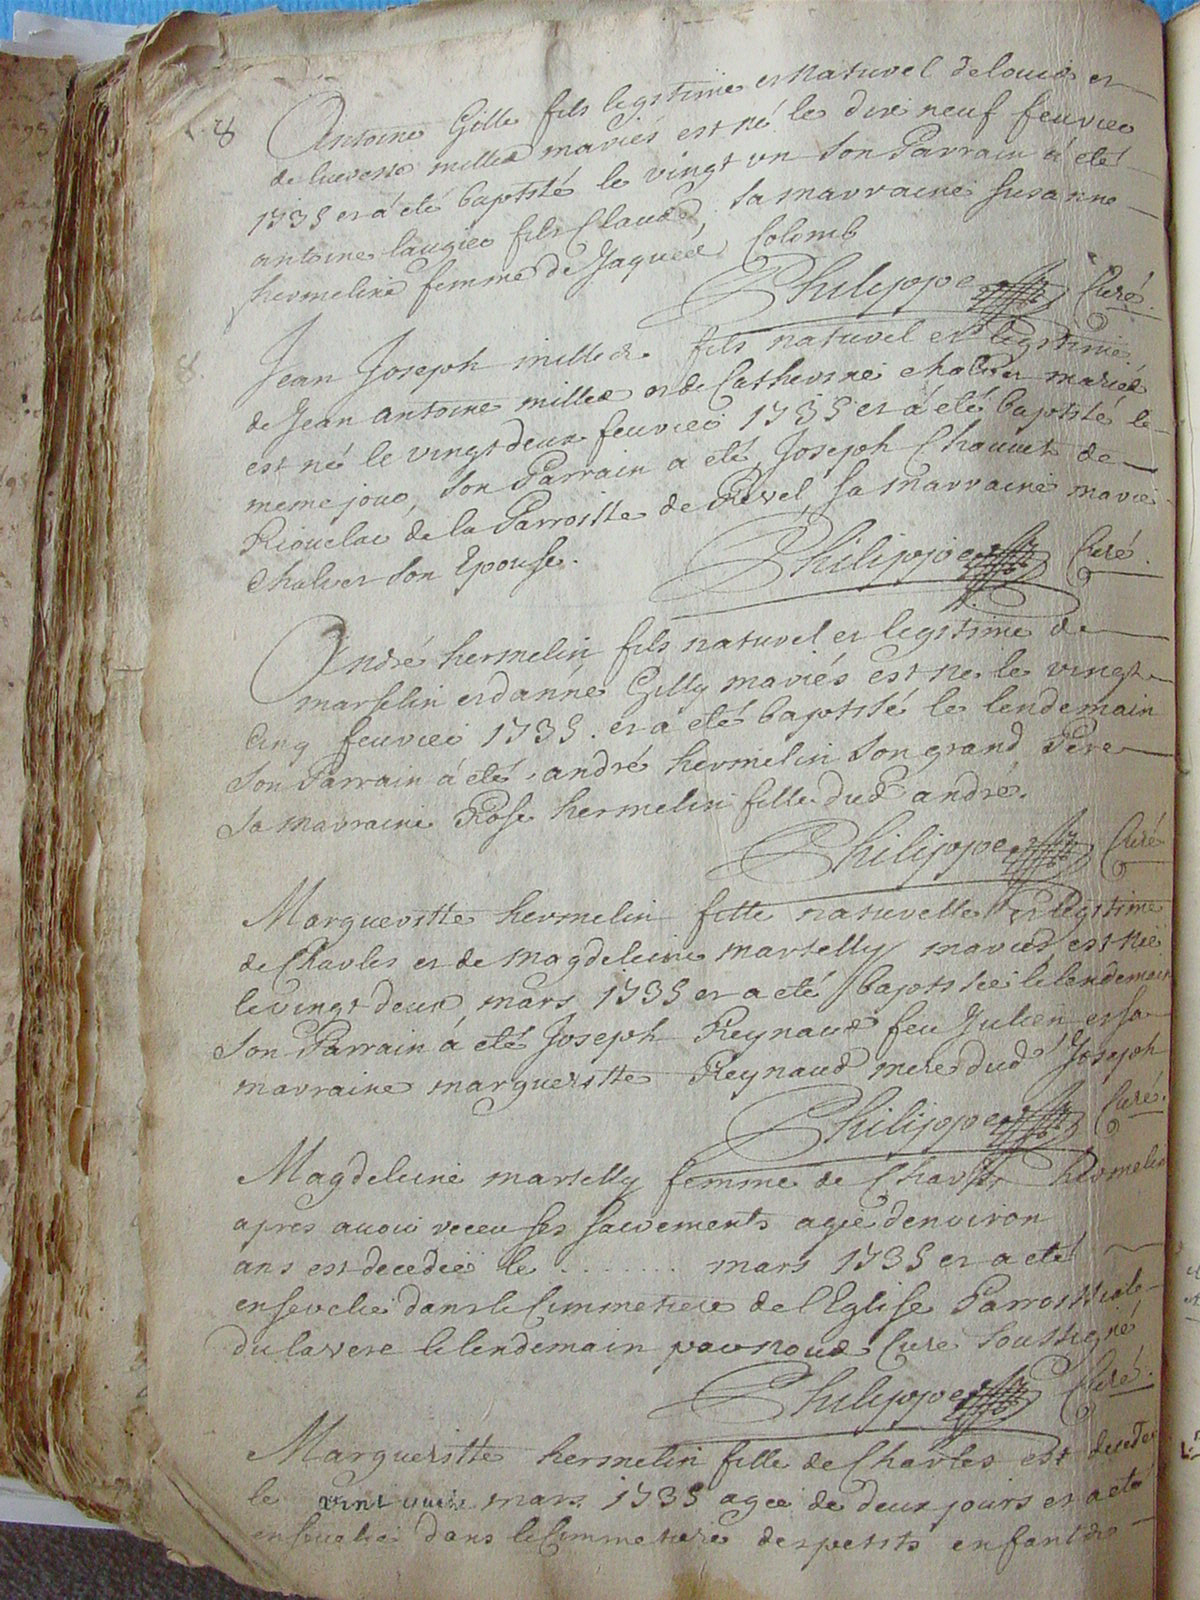 8 Antoine Gille fils legitime et naturel de louis et
de lucresse millou mariés est né le dix neuf feuvrier
1735 et á eté baptisé le vingt un son Parrain á eté
antoine laugier fils Claude, sa marraine Susanne
hermeline femme de Jaques Colomb
Philippe Curé.
8 Jean Joseph millou fils naturel et legitime
de Jean antoine millou et de Catherine chalver mariés
est né le vingt deux feuvrier 1735 et á eté baptisé le
meme jour, son Parrain a eté Joseph Chauvet de
Riouclar de la Parroisse de Revel, sa marraine marie
Chalver son Epouse.
Philippe Curé.
André hermelin fils naturel et legitime de
marselin et d'anne Gilly mariés est ne le vingt
cinq feuvrier 1735. et a eté baptisé le lendemain
son Parrain á eté andré hermelin son grand Pere
sa marraine Rose hermelin fille dud andré.
Philippe Curé
Margueritte hermelin fille naturelle et legitime
de Charles et de magdeleine martelly mariés est née
le vingt deux mars 1735 et a eté baptisée le lendemain
son Parrain á eté Joseph Reynaud feu Julien et sa
marraine margueritte Reynaud mere dud Joseph
Philippe Curé.
Magdeleine martelly femme de Charles hermelin
apres avoir receu ses sacrements agée denviron
ans est decedée le ........ mars 1735 et a eté
ensevelie dans le Cimmetiere de l'Eglise Parroissiale
du laverc le lendemain par nous Curé soussigné
Philippe Curé.
Marguerite hermelin fille de Charles est decedée
le mars 1735 agée de deux jours et a eté
ensevelie dans le Cimmetiere des petits enfants